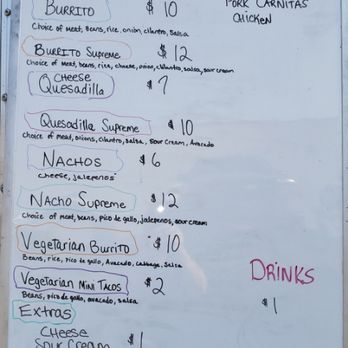 BURRITO $10
Choice of meat, Beans, rice, onion, cilantro, Salsa
BURRITO Supreme $12
Choice of meat, beans, rice, cheese, onion, cilantro, salsa, sour cream
CHEESE
Quesadilla $7
Quesadilla Supreme $10
Choice of meat, onions, cilantro, Salsa, Sour Cream, Avocado
NACHOS $6
cheese, jalepenos
Nacho Supreme $12
Choice of meat, beans, pico de gallo, jalepenos, sour cream
Vegetarian Burrito $10
Beans, rice, pico de gallo, Avocado, Cabbage, Salsa
Vegetarian MINI TACOS $2
Beans, pico de gallo, avocado, salsa
Extras
CHEESE
Sour Cream $1
PORK CARNITAS
CHICKEN
DRINKS
$1